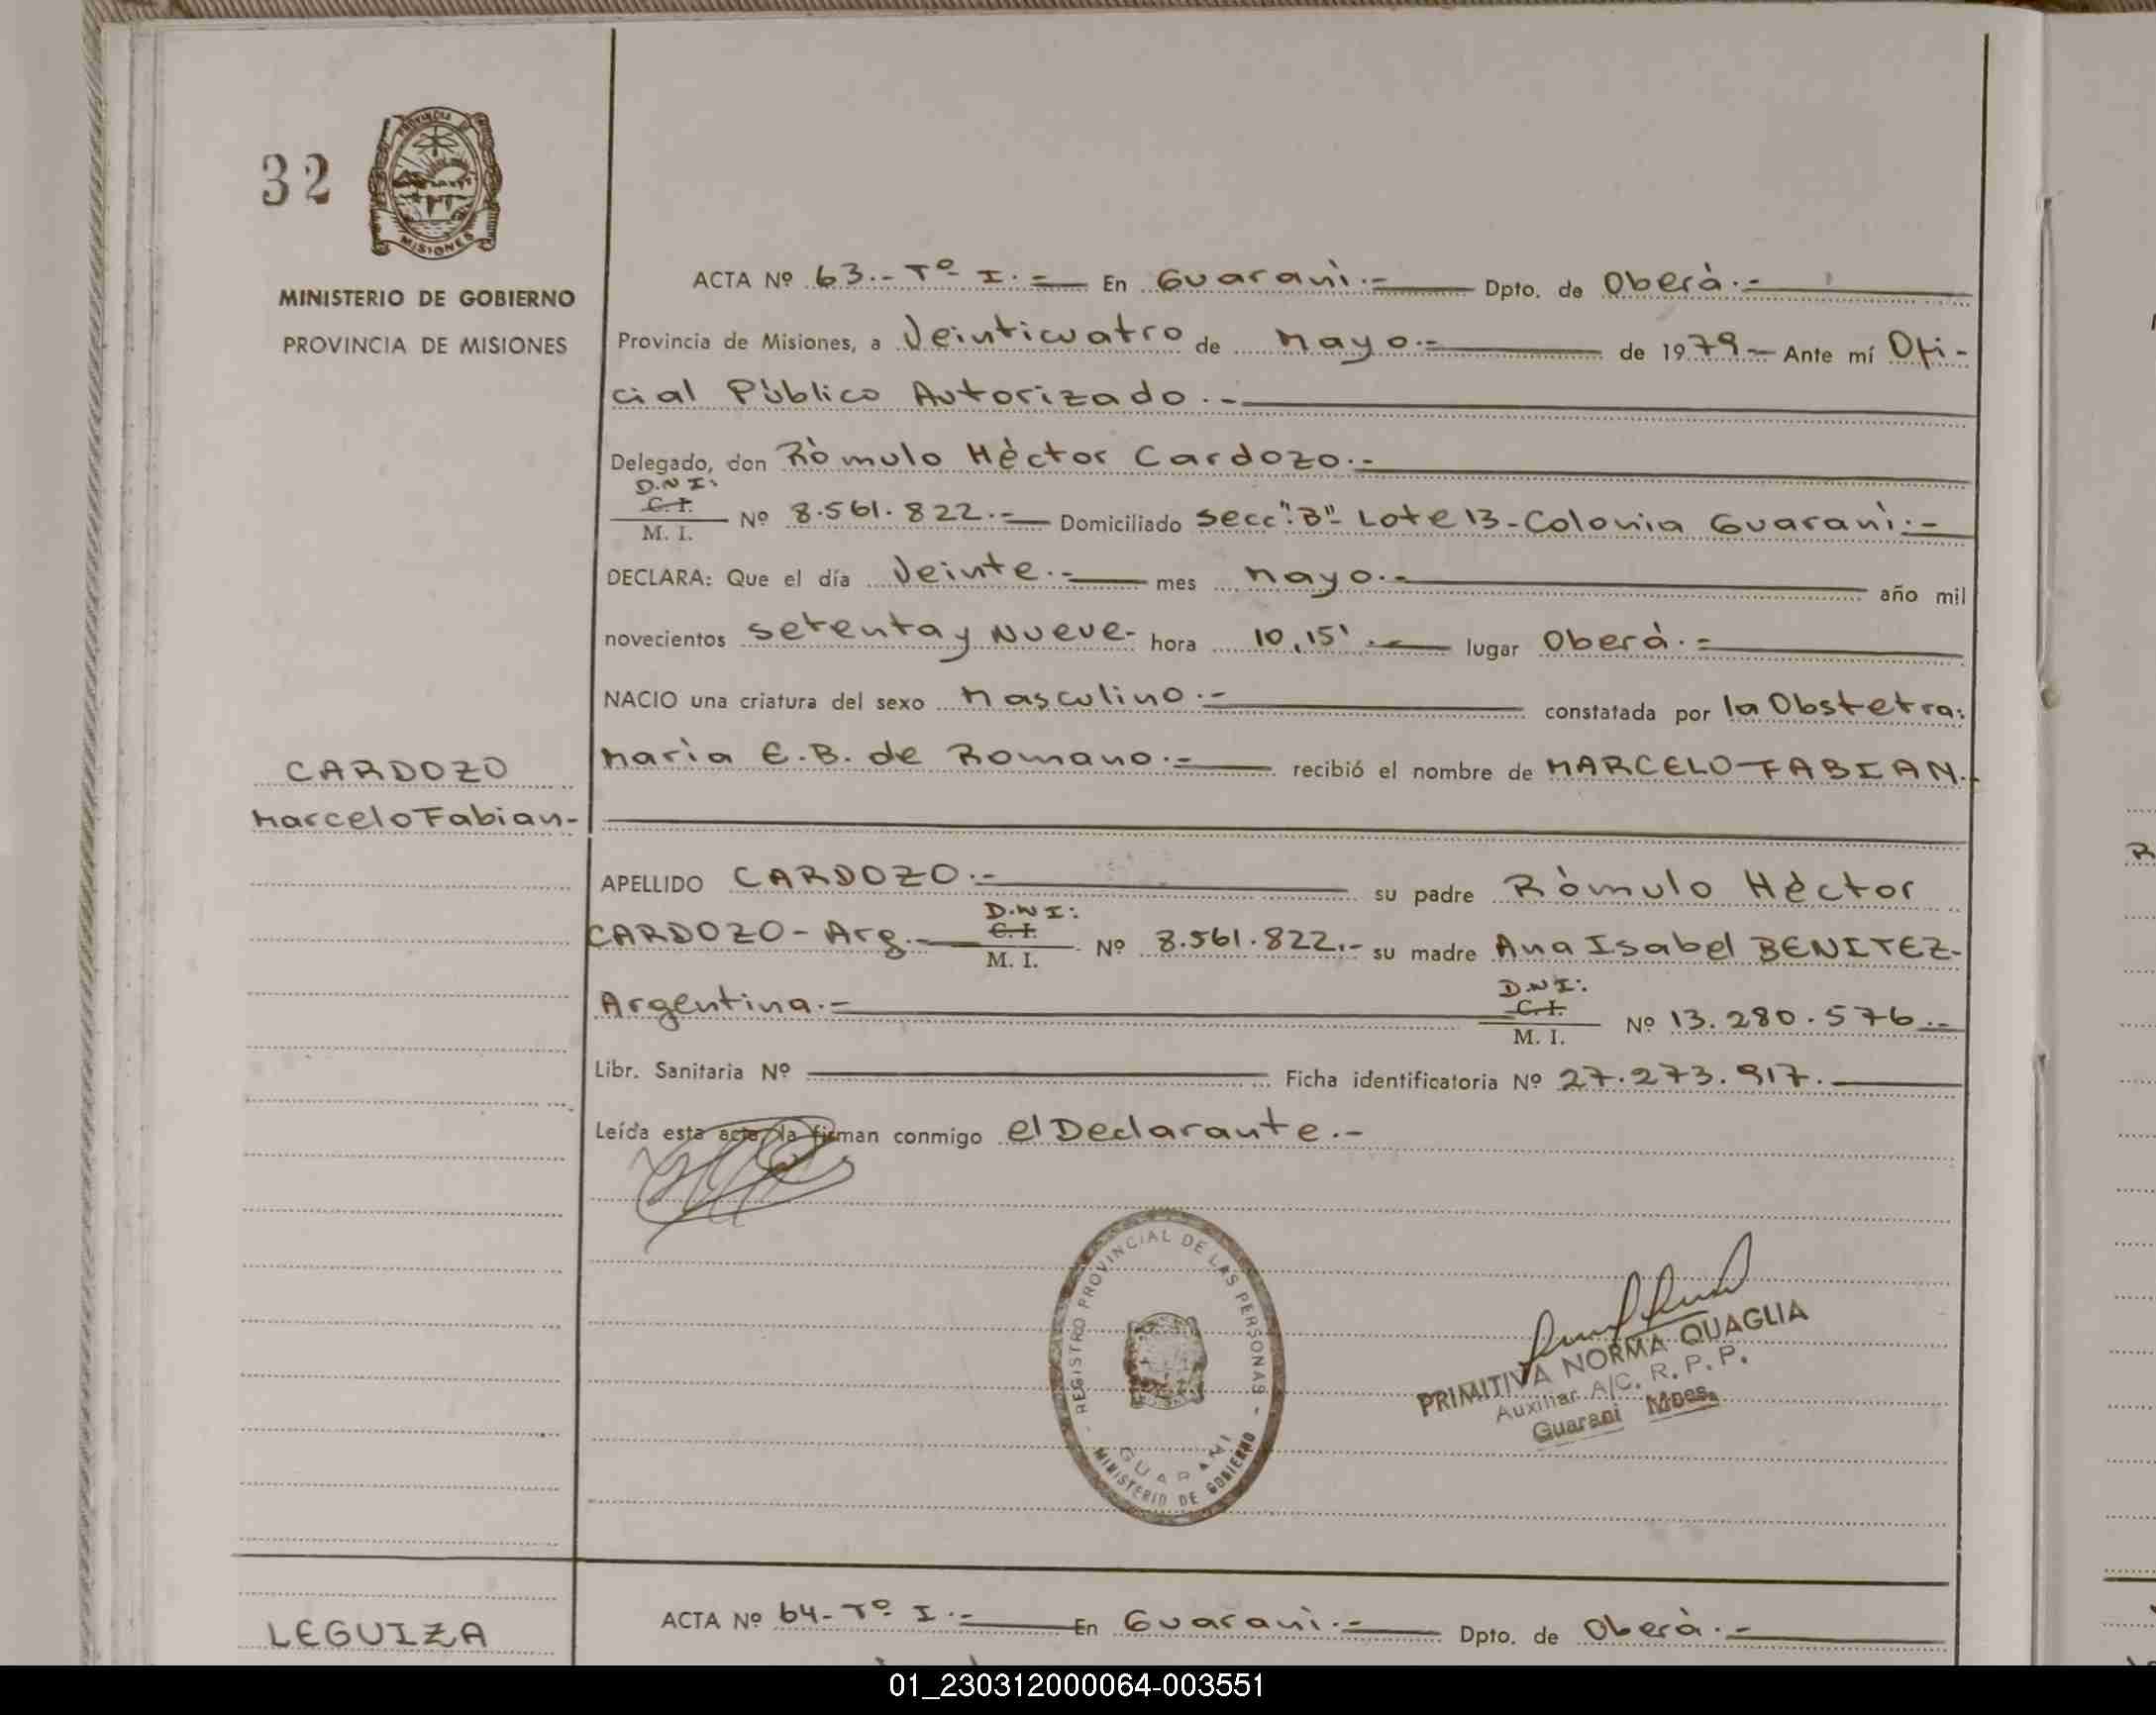 32
PROVINCIA DE
MISIONES
MINISTERIO DE GOBIERNO
PROVINCIA DE MISIONES
ACTA Nº 63.- Tº I.- En Guaranì.- Dpto. de Oberà.-
Provincia de Misiones, a Veinticuatro de Mayo.- de 1979.- Ante mí Ofi-
cial Pùblico Autorizado.-
Delegado, don Ròmulo Hèctor Cardozo.-
D.N.I:
C. I.
M. I. Nº 8.561.822.- Domiciliado Secc "B"- Lote 13-Colonia Guaranì.-
DECLARA: Que el día Veinte.- mes Mayo.- año mil
novecientos Setenta y Nueve- hora 10,15'.- lugar Oberà.-
NACIO una criatura del sexo Masculino.- constatada por la Obstetra:
Marìa E.B. de Romano.- recibió el nombre de MARCELO FABIAN.
CARDOZO
Marcelo Fabian-
APELLIDO CARDOZO.- su padre Ròmulo Hèctor
D.N.I:
C. I.
CARDOZO- Arg.- M. I. Nº 8.561.822.- su madre Ana Isabel BENITEZ-
D.N.I:
C. I.
Argentina.- M. I. Nº 13.280.576.-
Libr. Sanitaria Nº Ficha identificatoria Nº 27.273.917.
Leída esta acta la firman conmigo el Declarante.-
REGISTRO PROVINCIAL DE LAS PERSONAS
GUARANI
MINISTERIO DE GOBIERNO
PRIMITIVA NORMA QUAGLIA
Auxiliar A/C. R. P. P.
Guarani Mnes.
LEGUIZA
ACTA Nº 64- Tº I.- En Guaranì.- Dpto. de Oberà.-
01_230312000064-003551